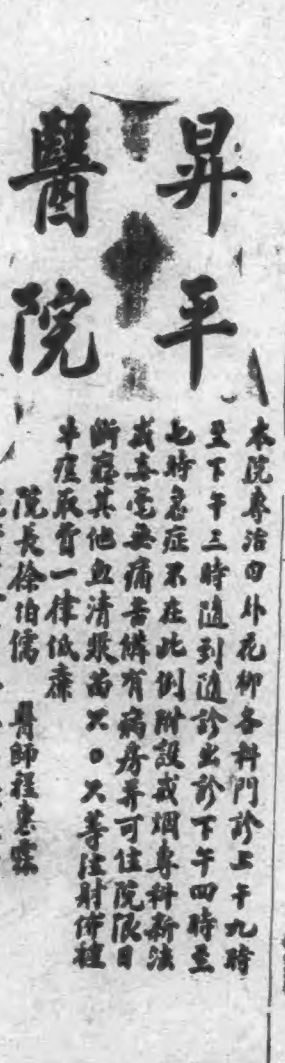 昇平
醫院
本院專治內外花柳各科門診上午九時
至下午三時隨到隨診出診下午四時至
七時急症不在此例附設戒烟專科新法
戒毒毫無痛苦備有病房并可住院限日
斷癮其他血清漿苗六〇六等注射併種
牛痘取費一律低廉
院長徐伯儒 醫師程惠霖